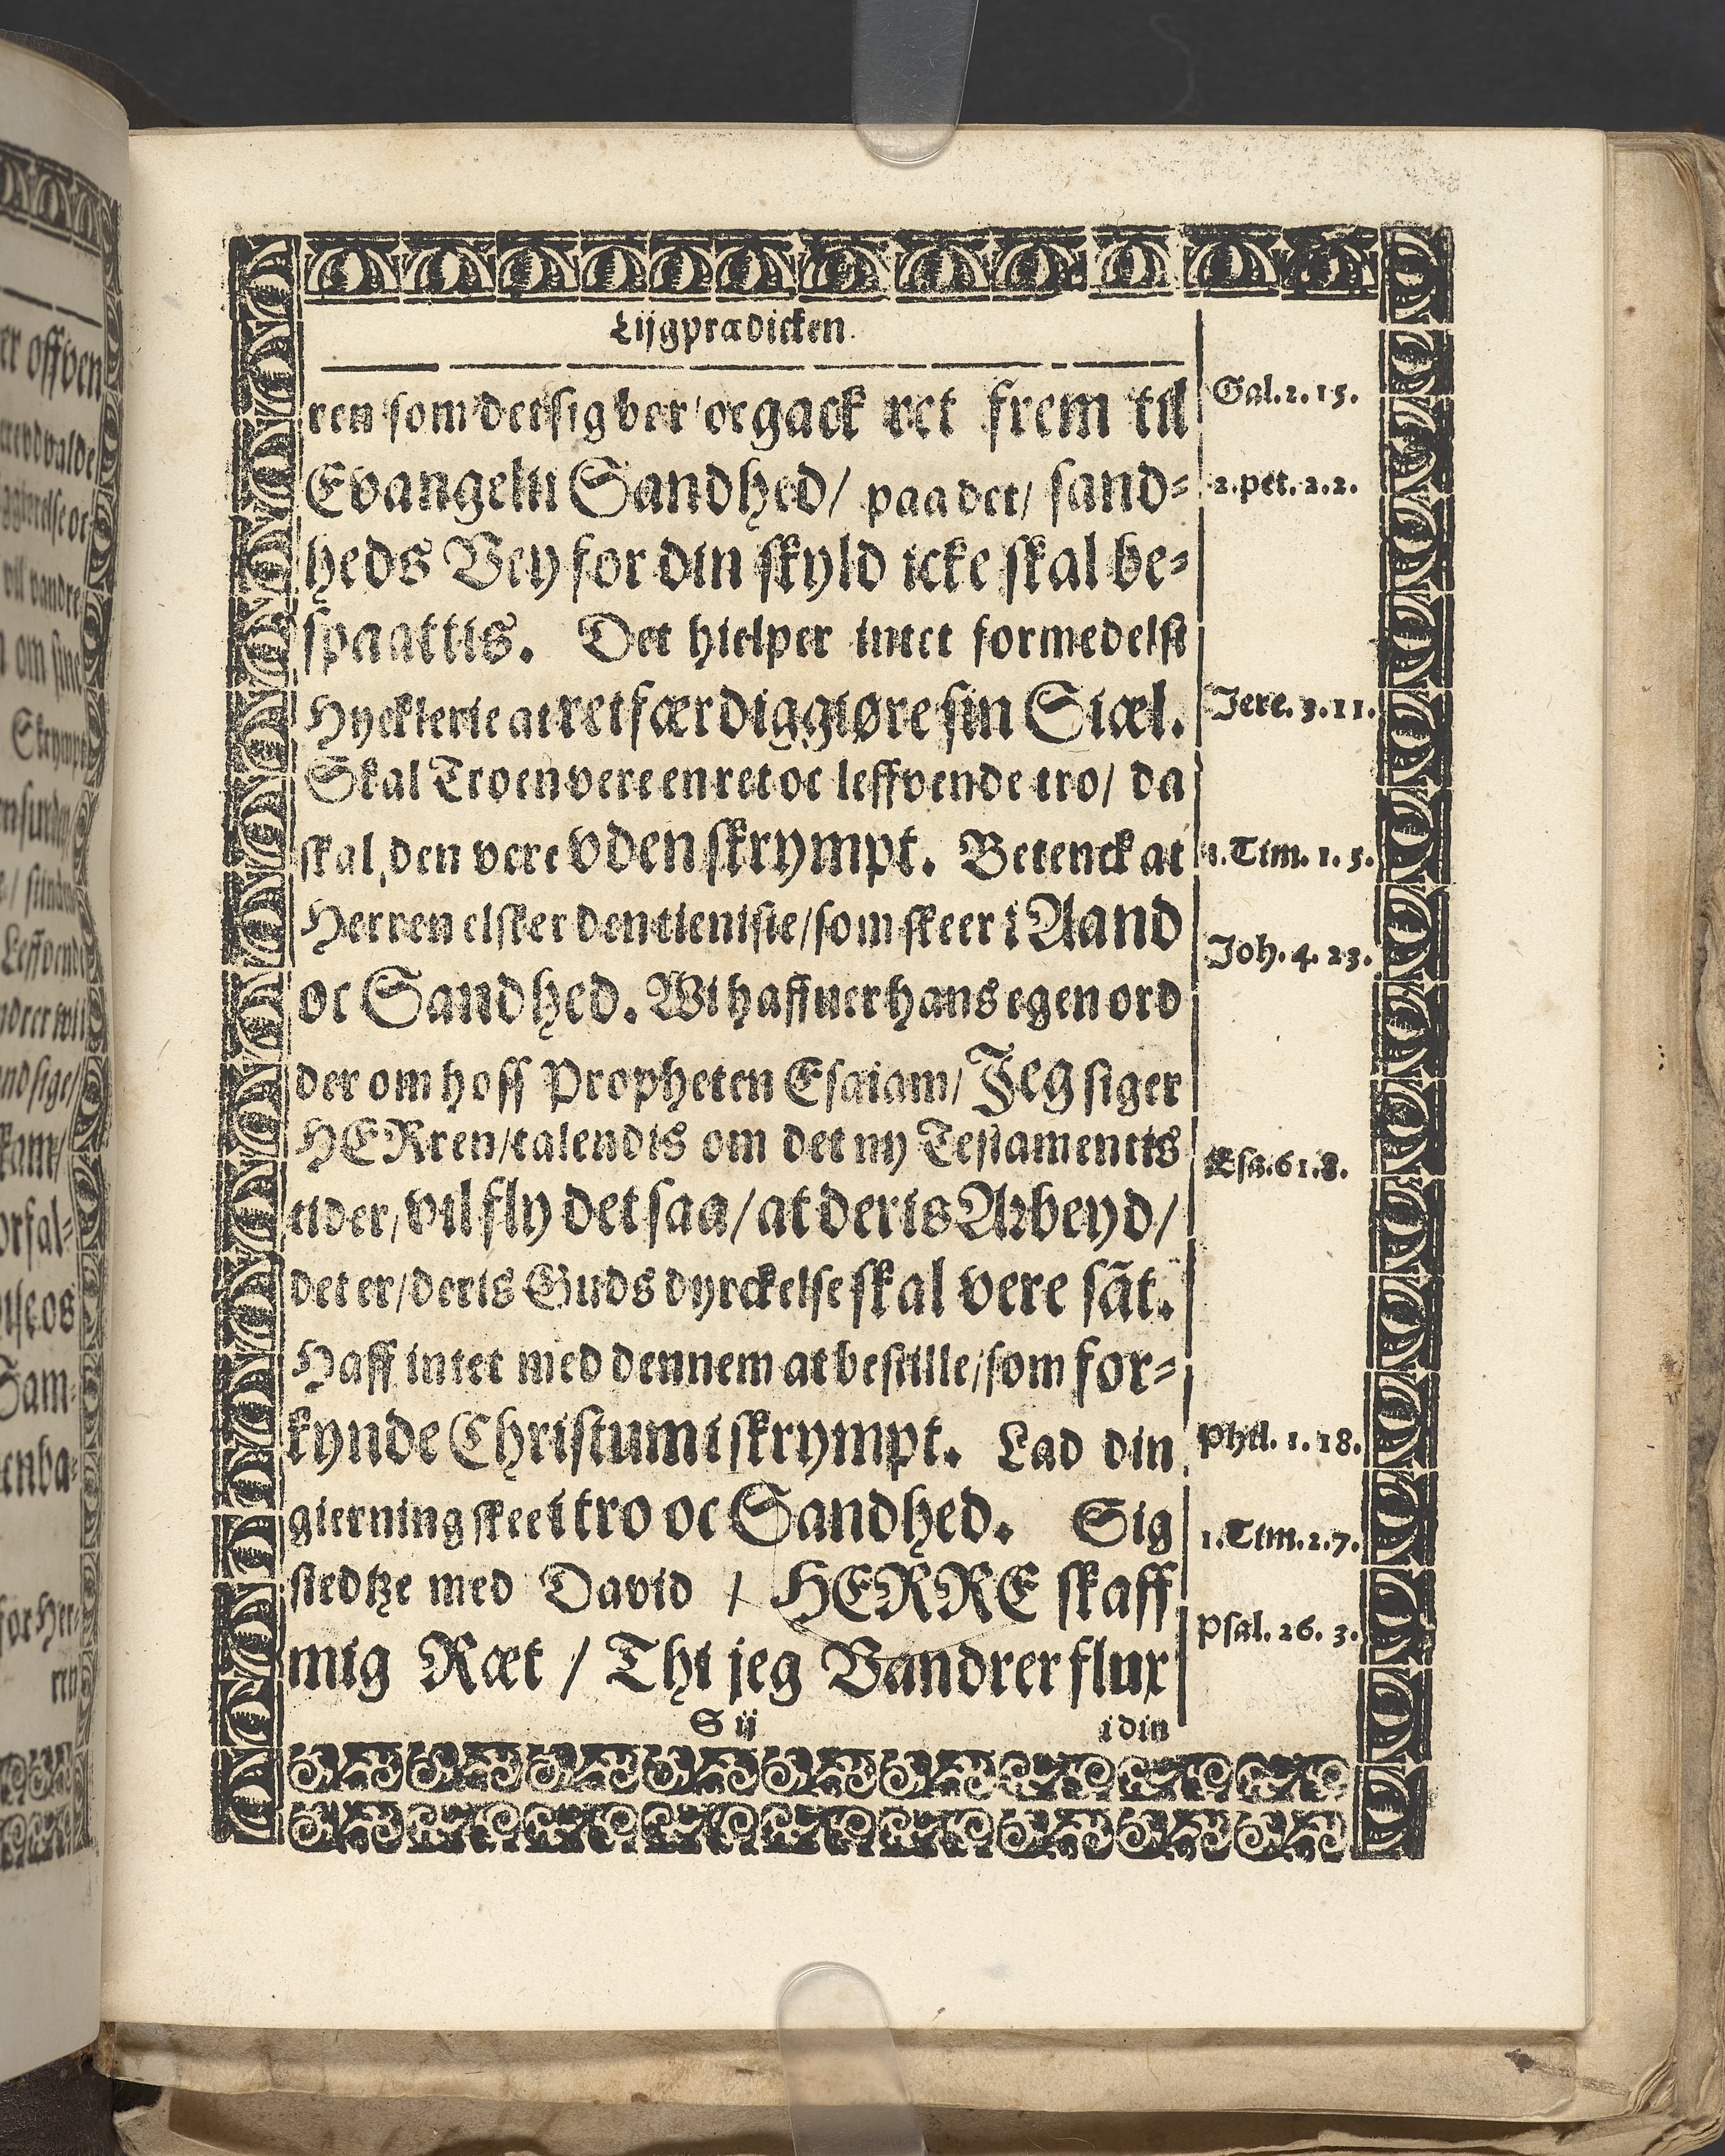 Lijgprædicken.
ren som det sig bør / oc gack ret frem til
Evangelii Sandhed / paa det / sand-
heds Vey for din skyld icke skal be-
spaattis. Det hielper intet formedelst
Hycklerie at retfærdiggiøre sin Siæl.
Skal Troen vere en ret oc leffvende tro / da
skal den vere vden skrympt. Betenck at
Herren elsker den tieniste / som skeer i Aand
oc Sandhed. Wi haffuer hans egen ord
der om hoss Propheten Esaiam / Jeg siger
HERren / talendis om det ny Testamentis
tider, vil fly det saa / at deris Arbeyd /
det er / deris Guds dyrckelse skal vere sãt.
Haff intet med dennem at bestille / som for-
kynde Christum i skrympt. Lad din
gierning skee i tro oc Sandhed. Sig
stedtze med David / HERRE skaff
mig Ræt / Thi jeg Vandrer flux
S ij
i din
Gal. 2. 15.
2. Pet. 2. 2.
Jere. 3. 11.
1. Tim. 1. 5.
Joh. 4. 23.
Esa. 61. 8.
Phil. 1. 18.
1. Tim. 2. 7.
Psal. 26. 3.